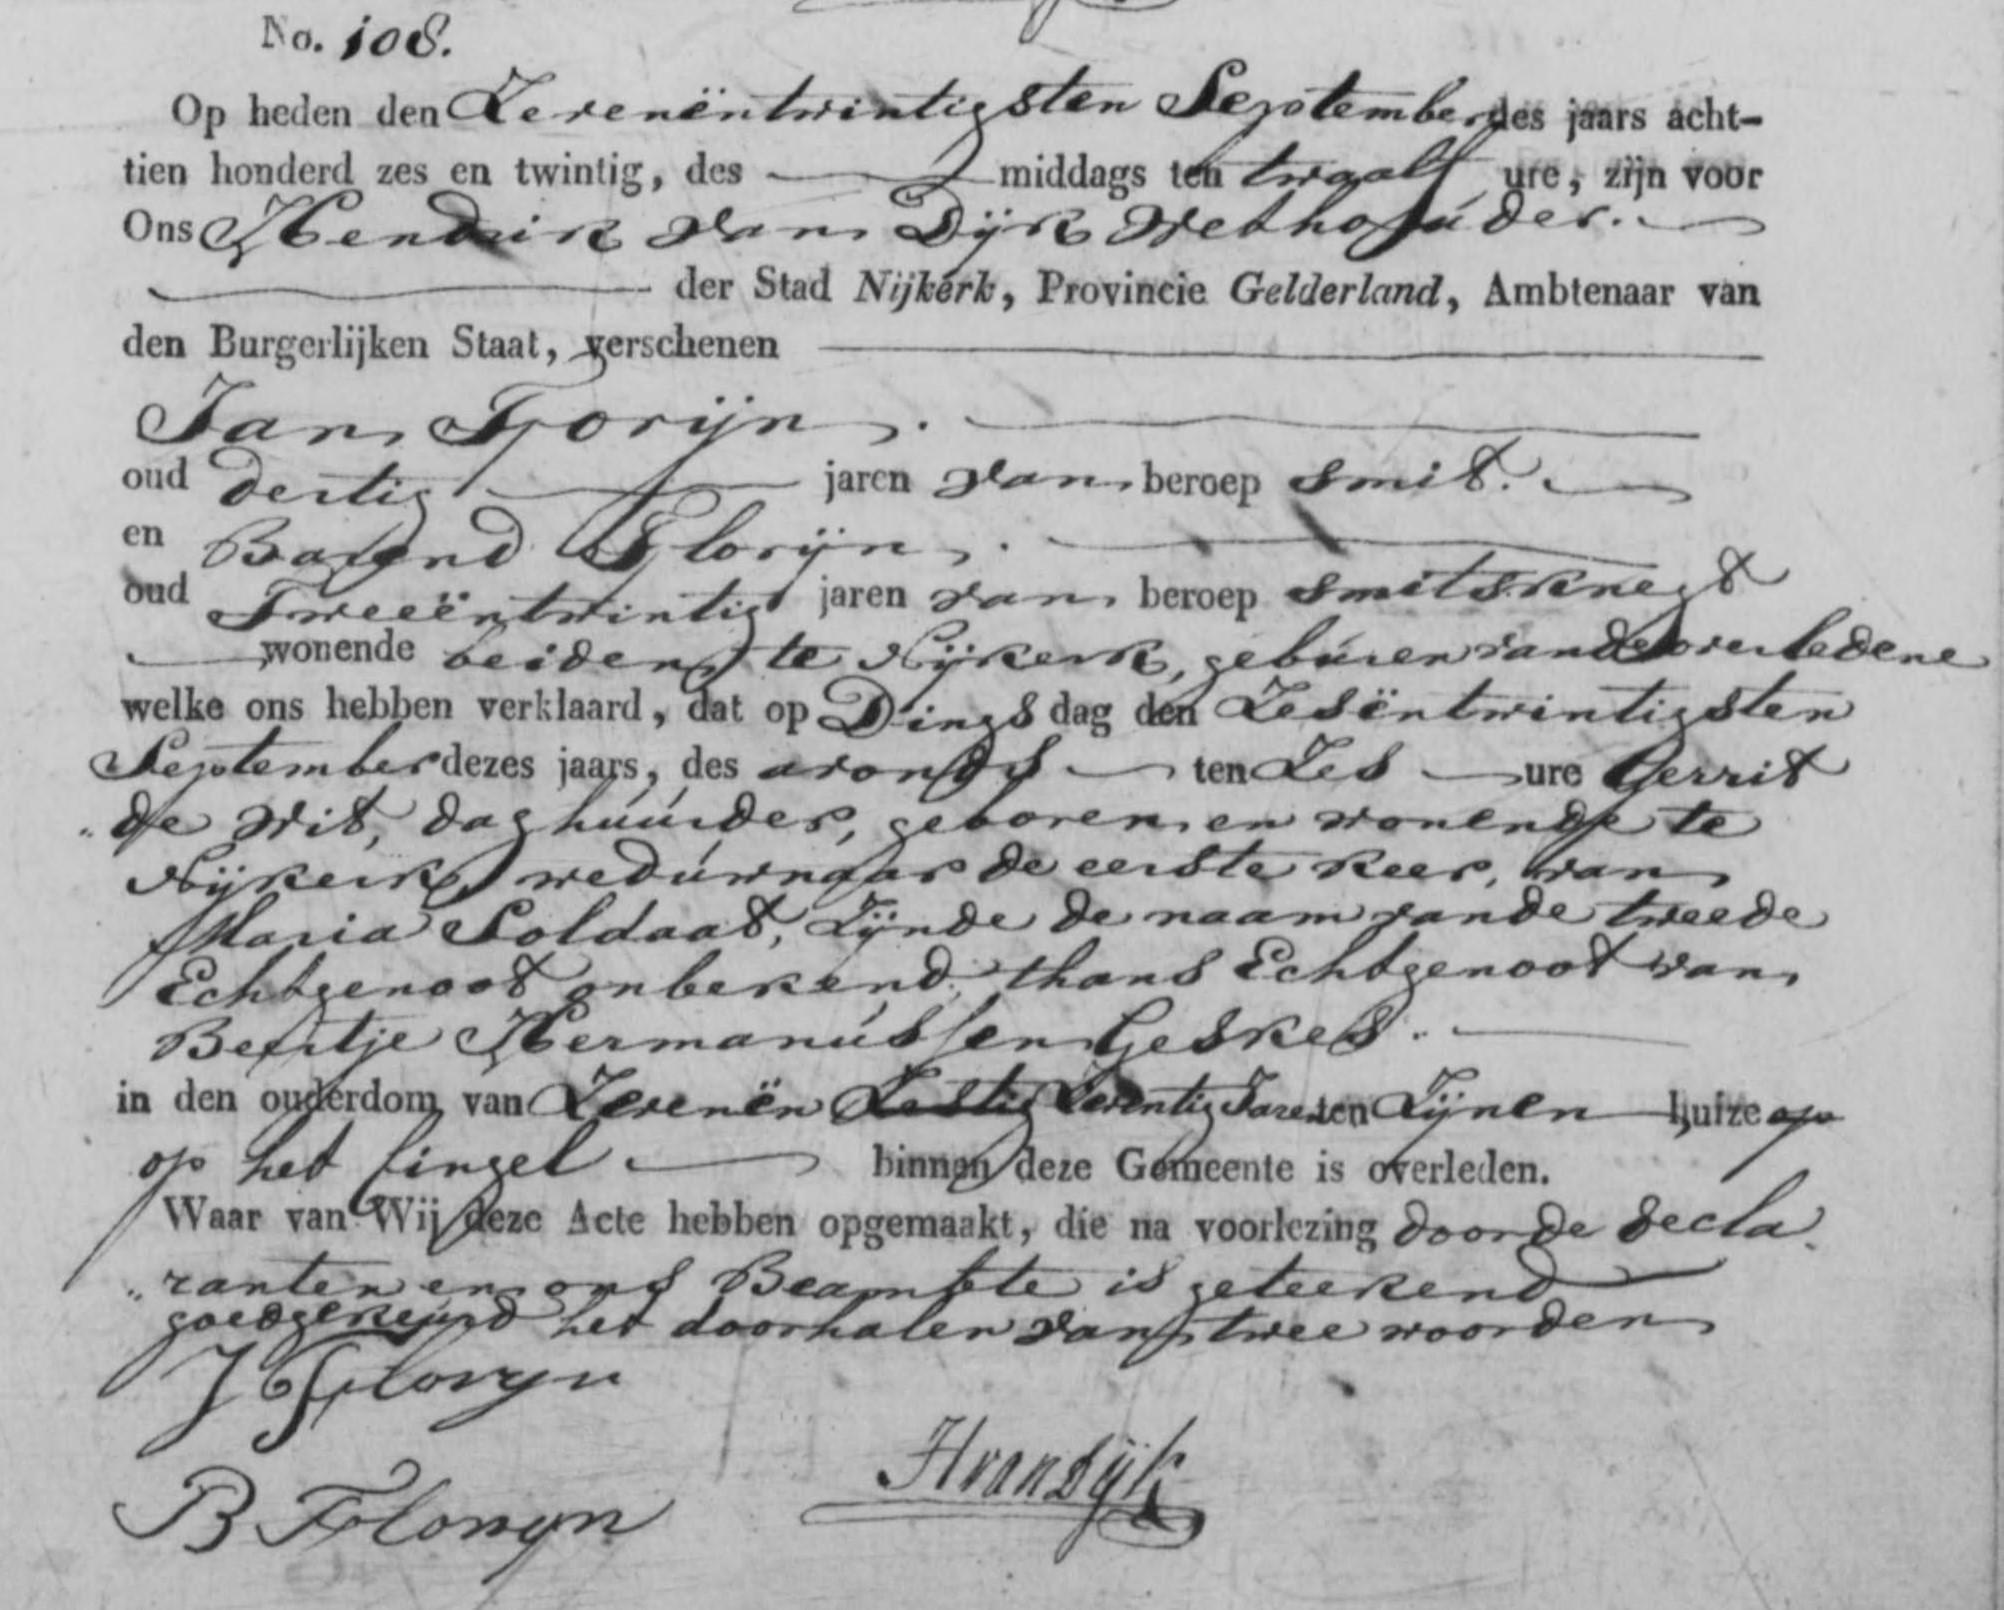 No. 108.
Op heden den Zevenëntwintigsten September des jaars acht-
tien honderd zes en twintig, des middags ten twaalf ure, zijn voor
Ons Hendrik van Dijk Wethouder.
der Stad Nijkerk, Provincie Gelderland, Ambtenaar van
den Burgerlijken Staat, verschenen
Jan Florijn.
oud dertig jaren van beroep smit.
en Barend Florijn.
oud Tweeëntwintig jaren van beroep smitsknegt
wonende beiden te Nijkerk, geburen van de overledene
welke ons hebben verklaard, dat op Dings dag den Zesëntwintigsten
September dezes jaars, des avonds ten Zes ure Gerrit
de Wit, daghuurder, geboren en wonende te
Nijkerk, weduwnaar de eerste keer, van
Maria Soldaat, Zijnde de naam van de tweede
Echtgenoot onbekend, thans Echtgenoot van
Beertje Hermanussen Geskes.
in den ouderdom van Zevenën Zestig Zeventig Jaren ten Zijnen huize op
op het singel binnen deze Gemeente is overleden.
Waar van Wij deze Acte hebben opgemaakt, die na voorlezing door de decla
"ranten en ons Beambte is geteekend
goedgekeurd het doorhalen van twee woorden
J Florijn
HvanDijk
B Florijn